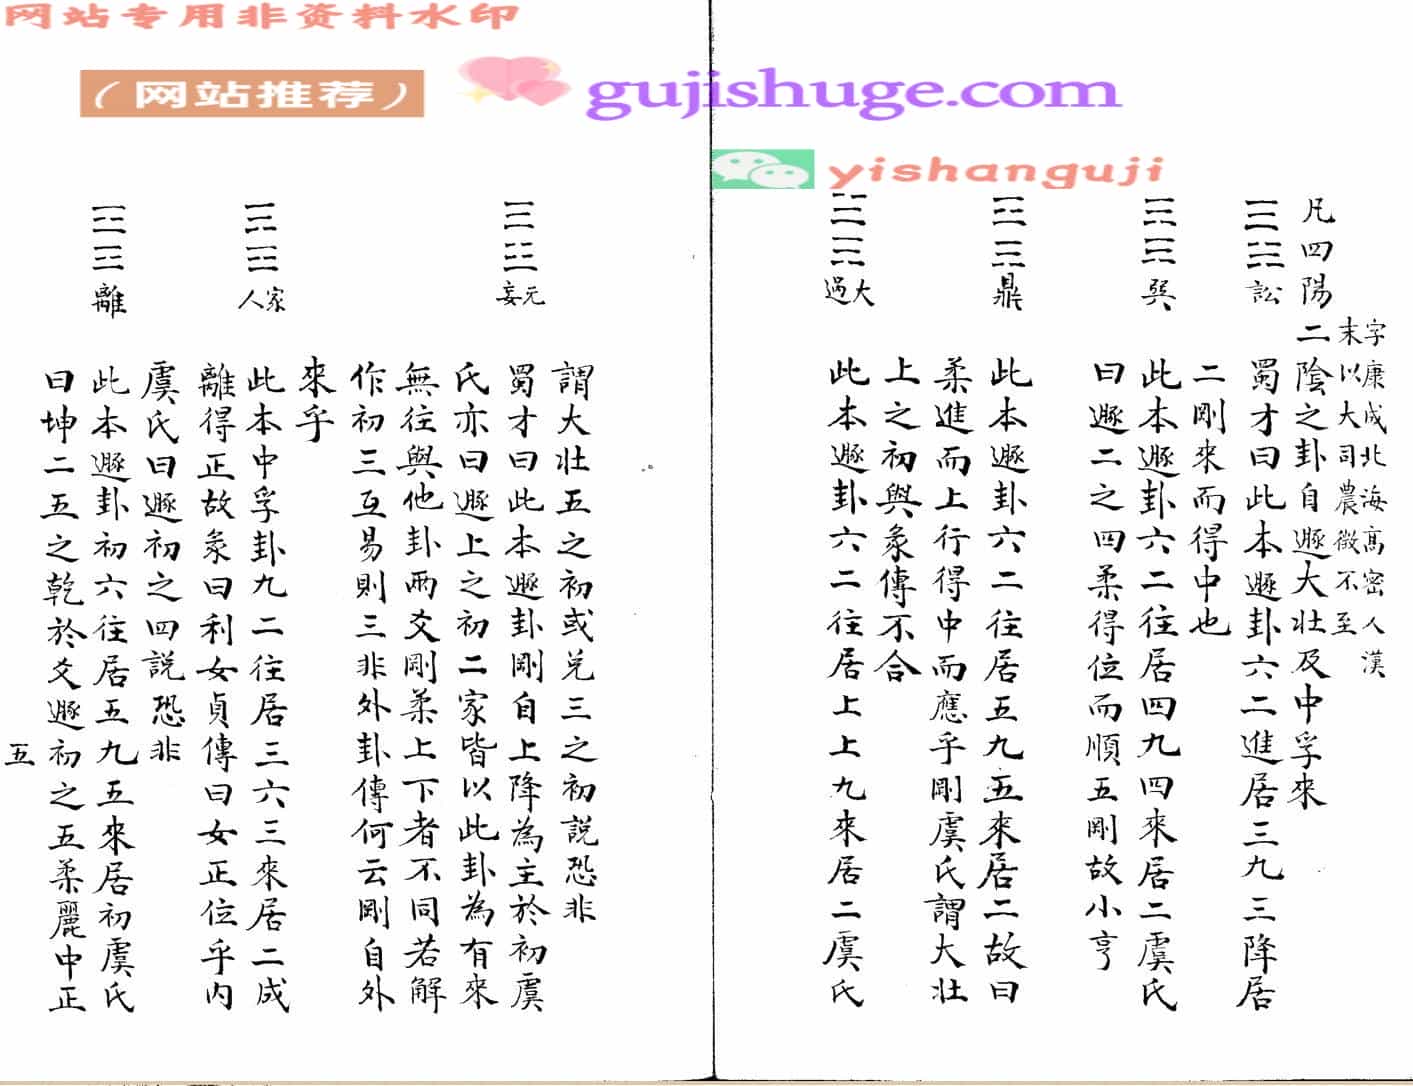 网站专用非资料水印
（网站推荐）
gujishuge.com
yishanguji
字康成北海高密人漢
末以大司農徵不至
凡四陽二陰之卦自遯大壯及中孚來
訟
蜀才曰此本遯卦六二進居三九三降居
二剛來而得中也
巽
此本遯卦六二往居四九四來居二虞氏
曰遯二之四柔得位而順五剛故小亨
鼎
此本遯卦六二往居五九五來居二故曰
柔進而上行得中而應乎剛虞氏謂大壯
上之初與彖傳不合
大過
此本遯卦六二往居上上九來居二虞氏
謂大壯五之初或兌三之初說恐非
无妄
蜀才曰此本遯卦剛自上降為主於初虞
氏亦曰遯上之初二家皆以此卦為有來
無往與他卦兩爻剛柔上下者不同若解
作初三互易則三非外卦傳何云剛自外
來乎
家人
此本中孚卦九二往居三六三來居二成
離得正故彖曰利女貞傳曰女正位乎內
虞氏曰遯初之四說恐非
離
此本遯卦初六往居五九五來居初虞氏
曰坤二五之乾於爻遯初之五柔麗中正
五